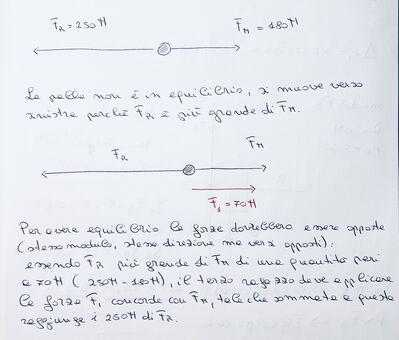 F_R = 250 N F_M = 180 N
La palla non è in equilibrio, si muove verso
sinistra perché F_R è più grande di F_M.
F_R F_M
F_1 = 70 N
Per avere equilibrio le forze dovrebbero essere opposte
(stesso modulo, stessa direzione ma versi opposti):
essendo F_R più grande di F_M di una quantità pari
a 70 N ( 250 N - 180 N), il terzo ragazzo deve applicare
la forza F_1 concorde con F_M, tale che sommata a questa
raggiunge i 250 N di F_R.